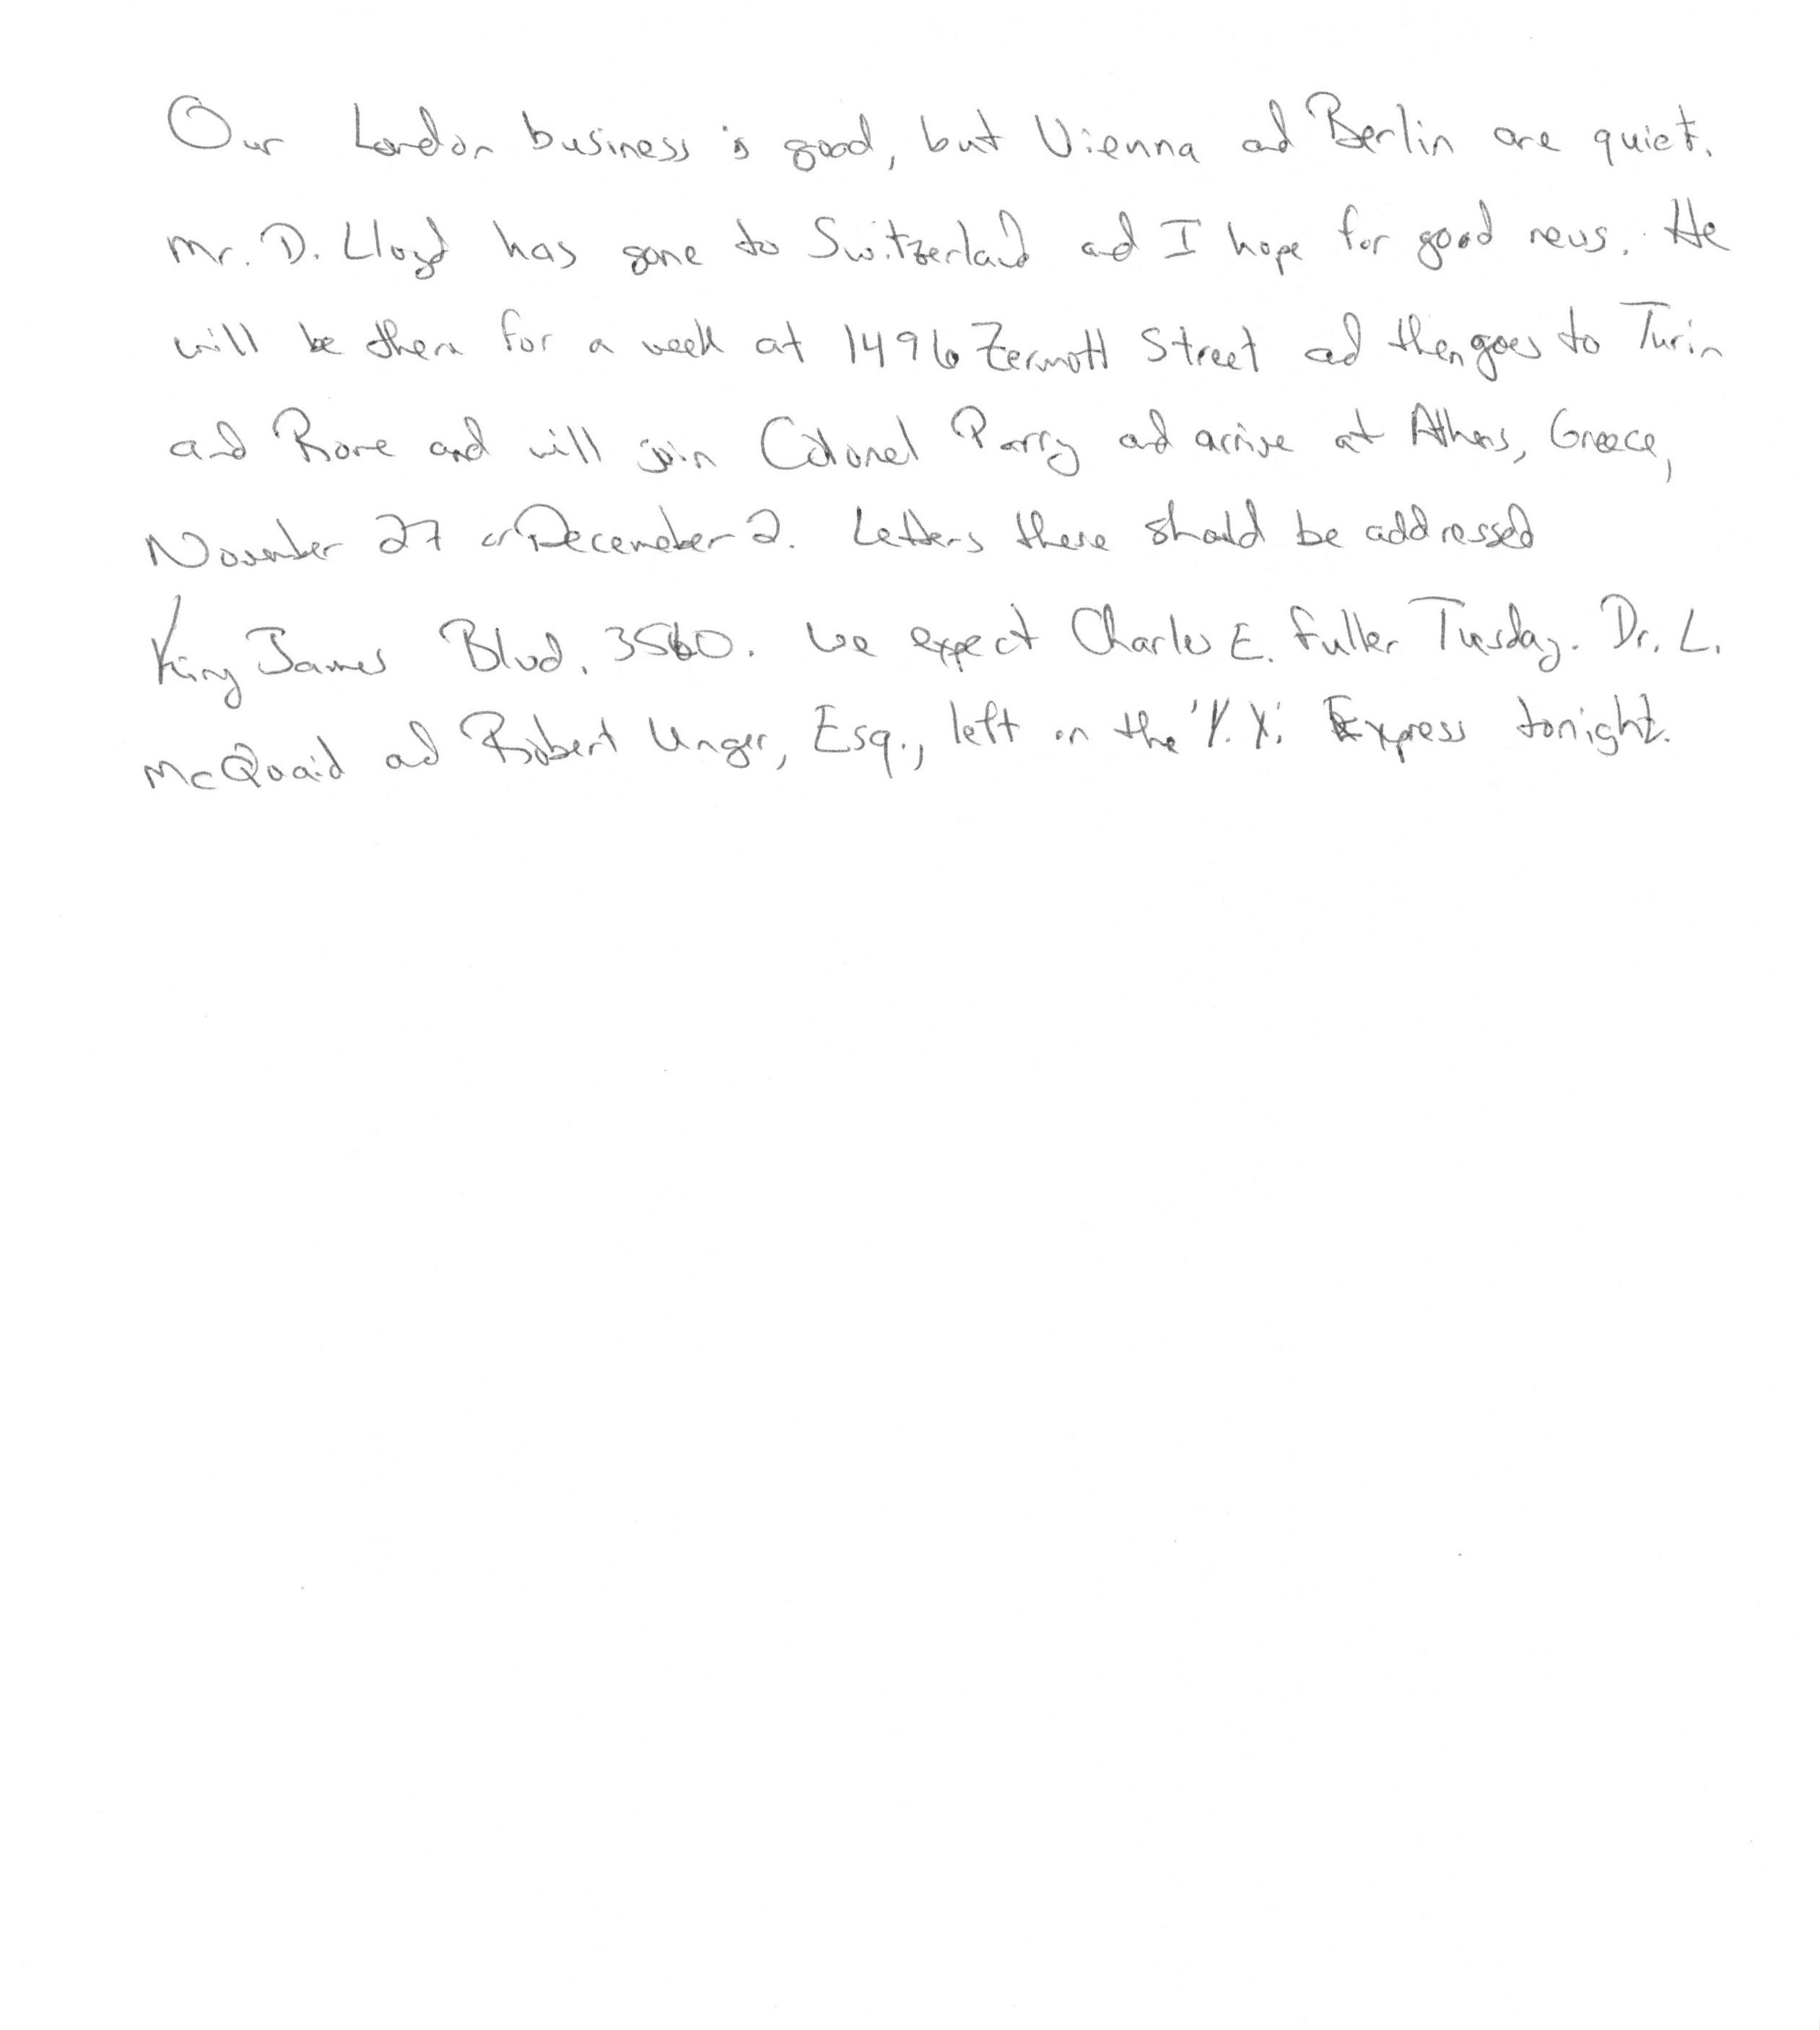 Our London business is good, but Vienna and Berlin are quiet.
Mr. D. Lloyd has gone to Switzerland and I hope for good news. He
will be there for a week at 1496 Zermott Street and then goes to Turin
and Rome and will join Colonel Parry and arrive at Athens, Greece,
November 27 or Decemeber 2. Letters there should be addressed
King James Blvd. 3560. We expect Charles E. Fuller Tuesday. Dr. L.
McQuaid and Robert Unger, Esq., left on the 'Y.X.' Express tonight.